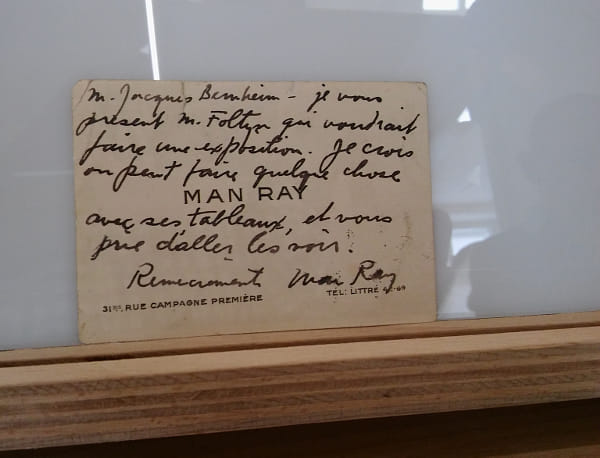 M. Jacques Bernheim - je vous
présent M. Foltyn qui voudrait
faire une exposition. Je crois
on peut faire quelque chose
MAN RAY
avec ses tableaux, et vous
prie d'aller les voir.
Remerciements Man Ray
31BIS, RUE CAMPAGNE PREMIÈRE
TÉL: LITTRÉ -69